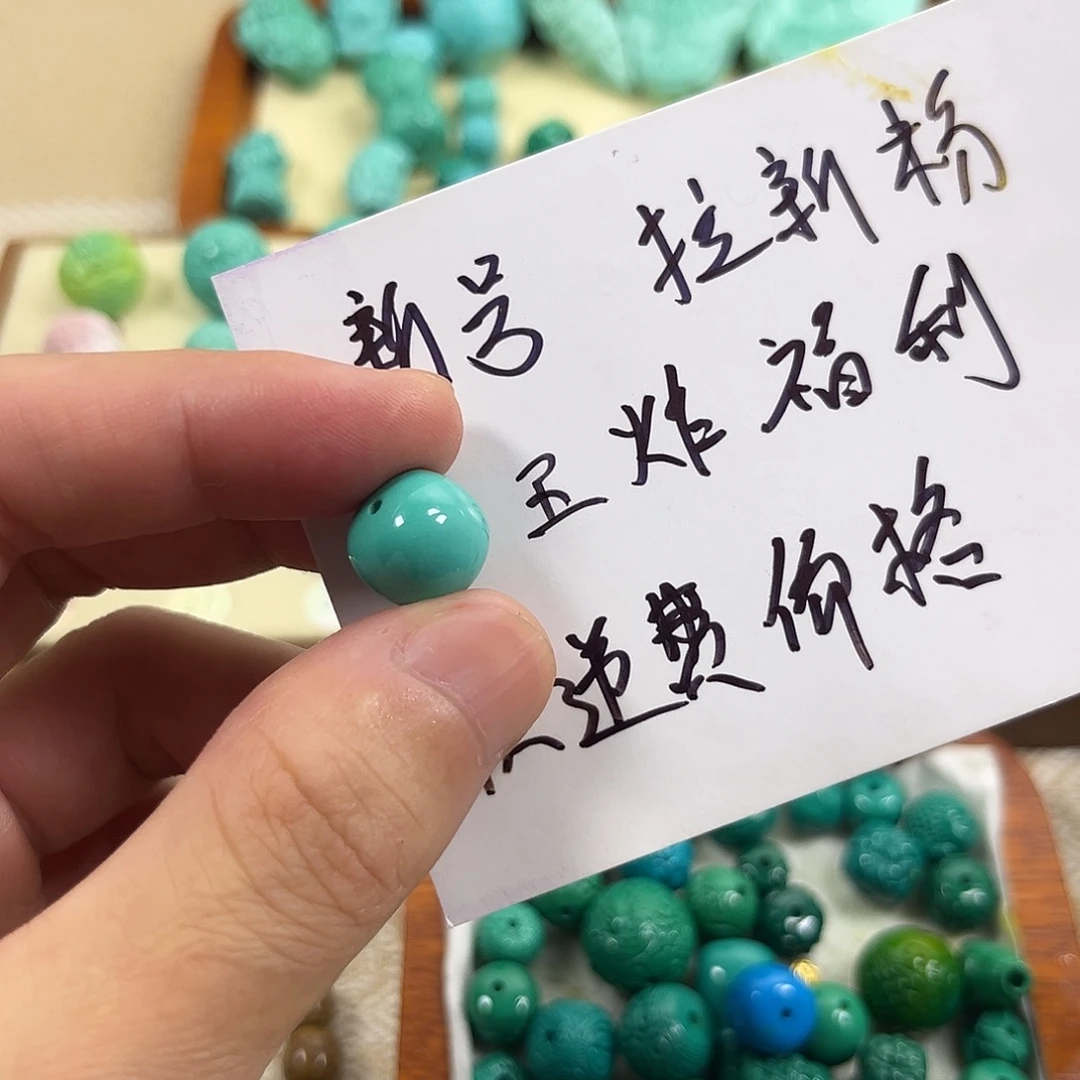 新号 拉新粉
王炸福利
递费价格